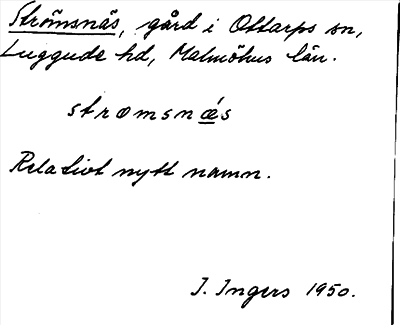 Strömsnäs, gård i Ottarps sn,
Luggude hd, Malmöhus län.
stromsnǽs
Relativt nytt namn.
I. Ingers 1950.